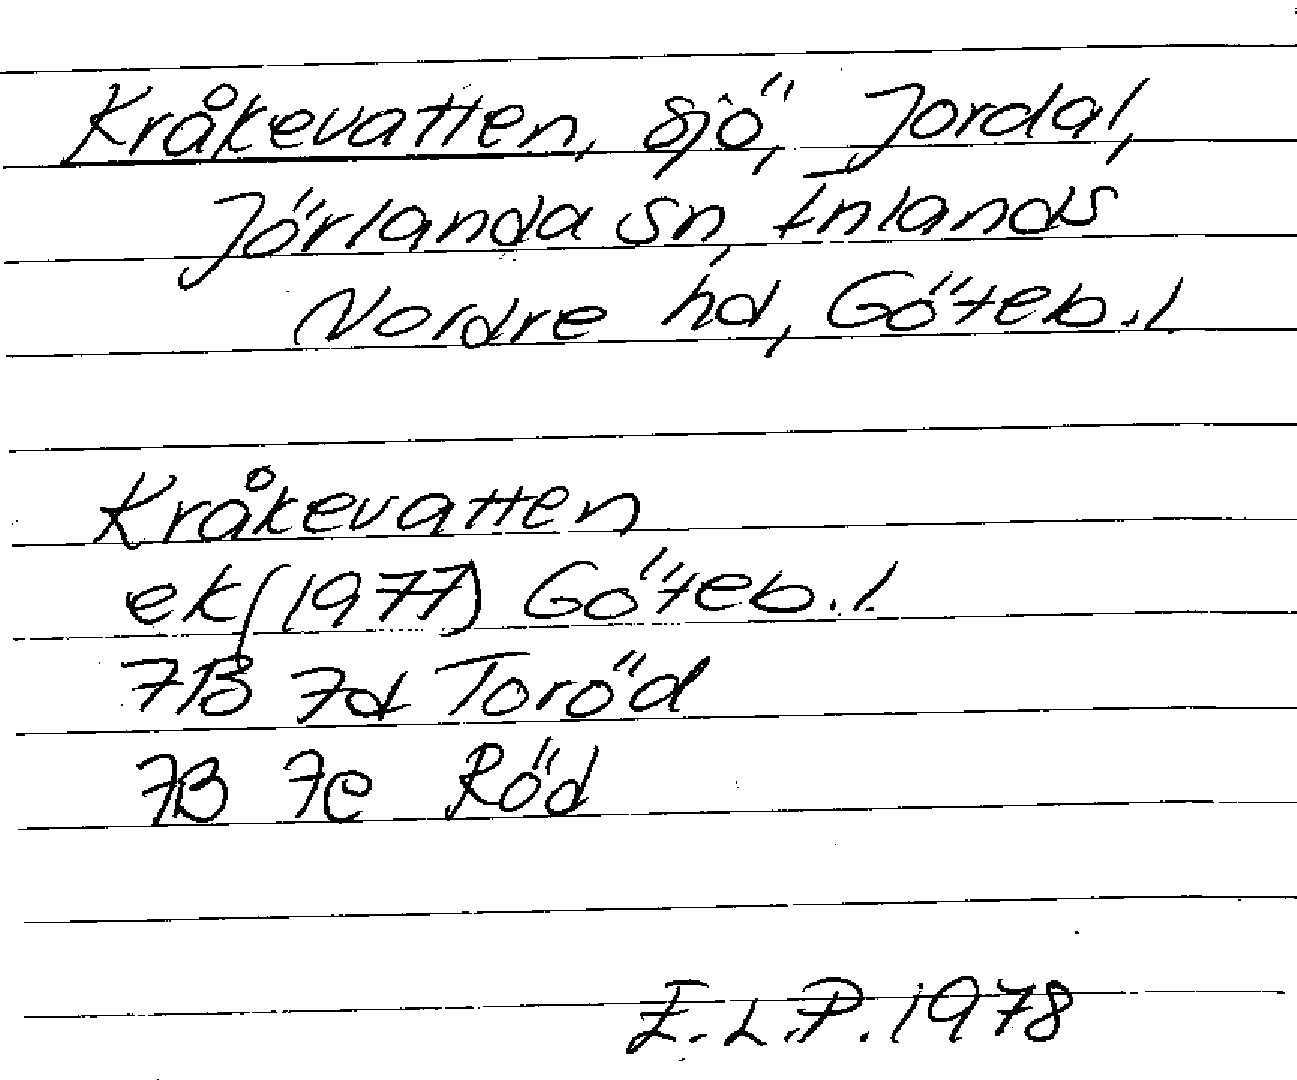 Kråkevatten, sjö, Jordal,
Jörlanda sn, Inlands
Nordre hd, Göteb.l.
Kråkevatten
ek (1977) Göteb.l.
7B 7d Toröd
7B 7e Röd
E.L.P. 1978